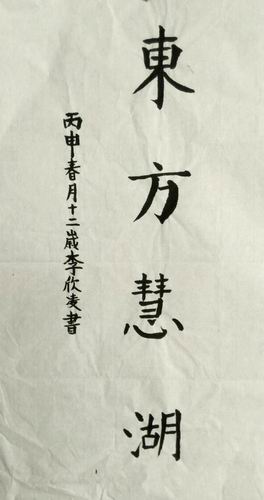 東方慧湖
丙申春月十二歲李欣凌書